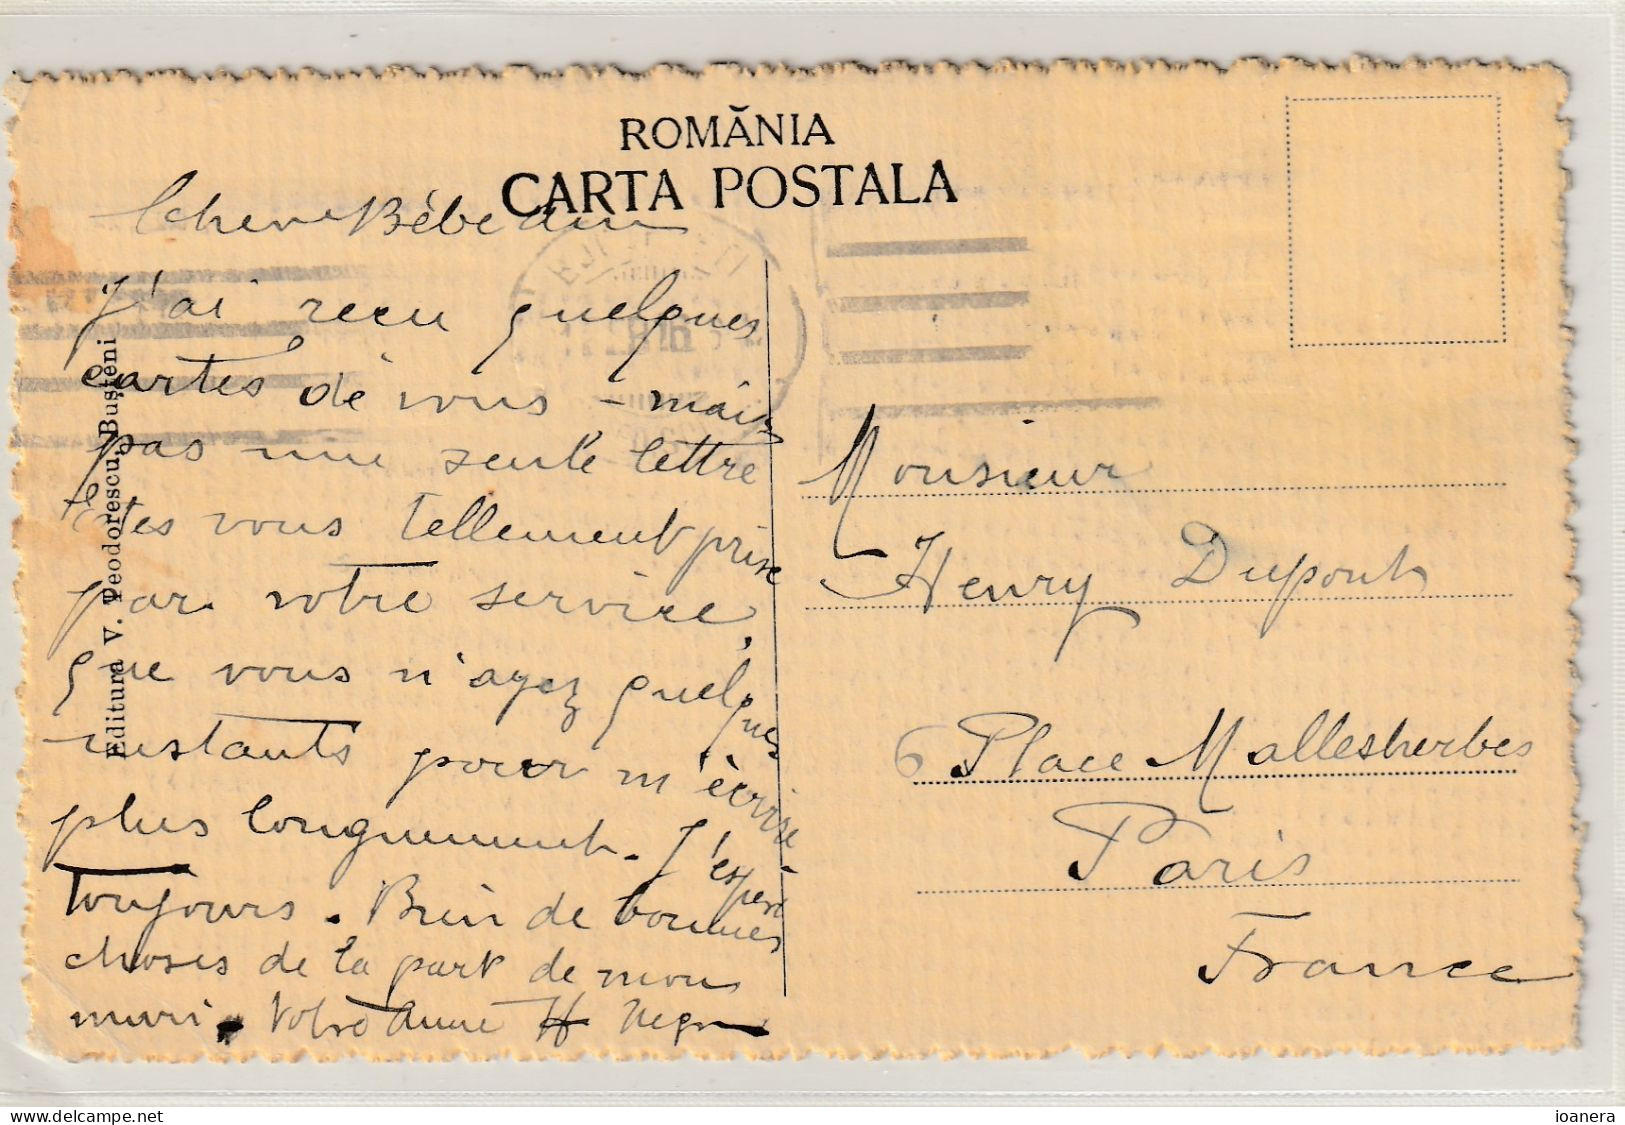 ROMĂNIA
CARTA POSTALA
J'ai recu quelques
cartes de vous - mais
pas une seule lettre
Etes vous tellement prise
par votre service,
que vous n'ayez quelques
instants pour m'ècrire
plus longuement. J'espère
toujours. Bien de bonnes
choses de la part de mon
mari. Votre Anne H. Negr
Monsieur
Henry Dupont
6 Place Mallesherbes
Paris
France
Editura V. Teodorescu, Bușteni
www.delcampe.net
ioanera